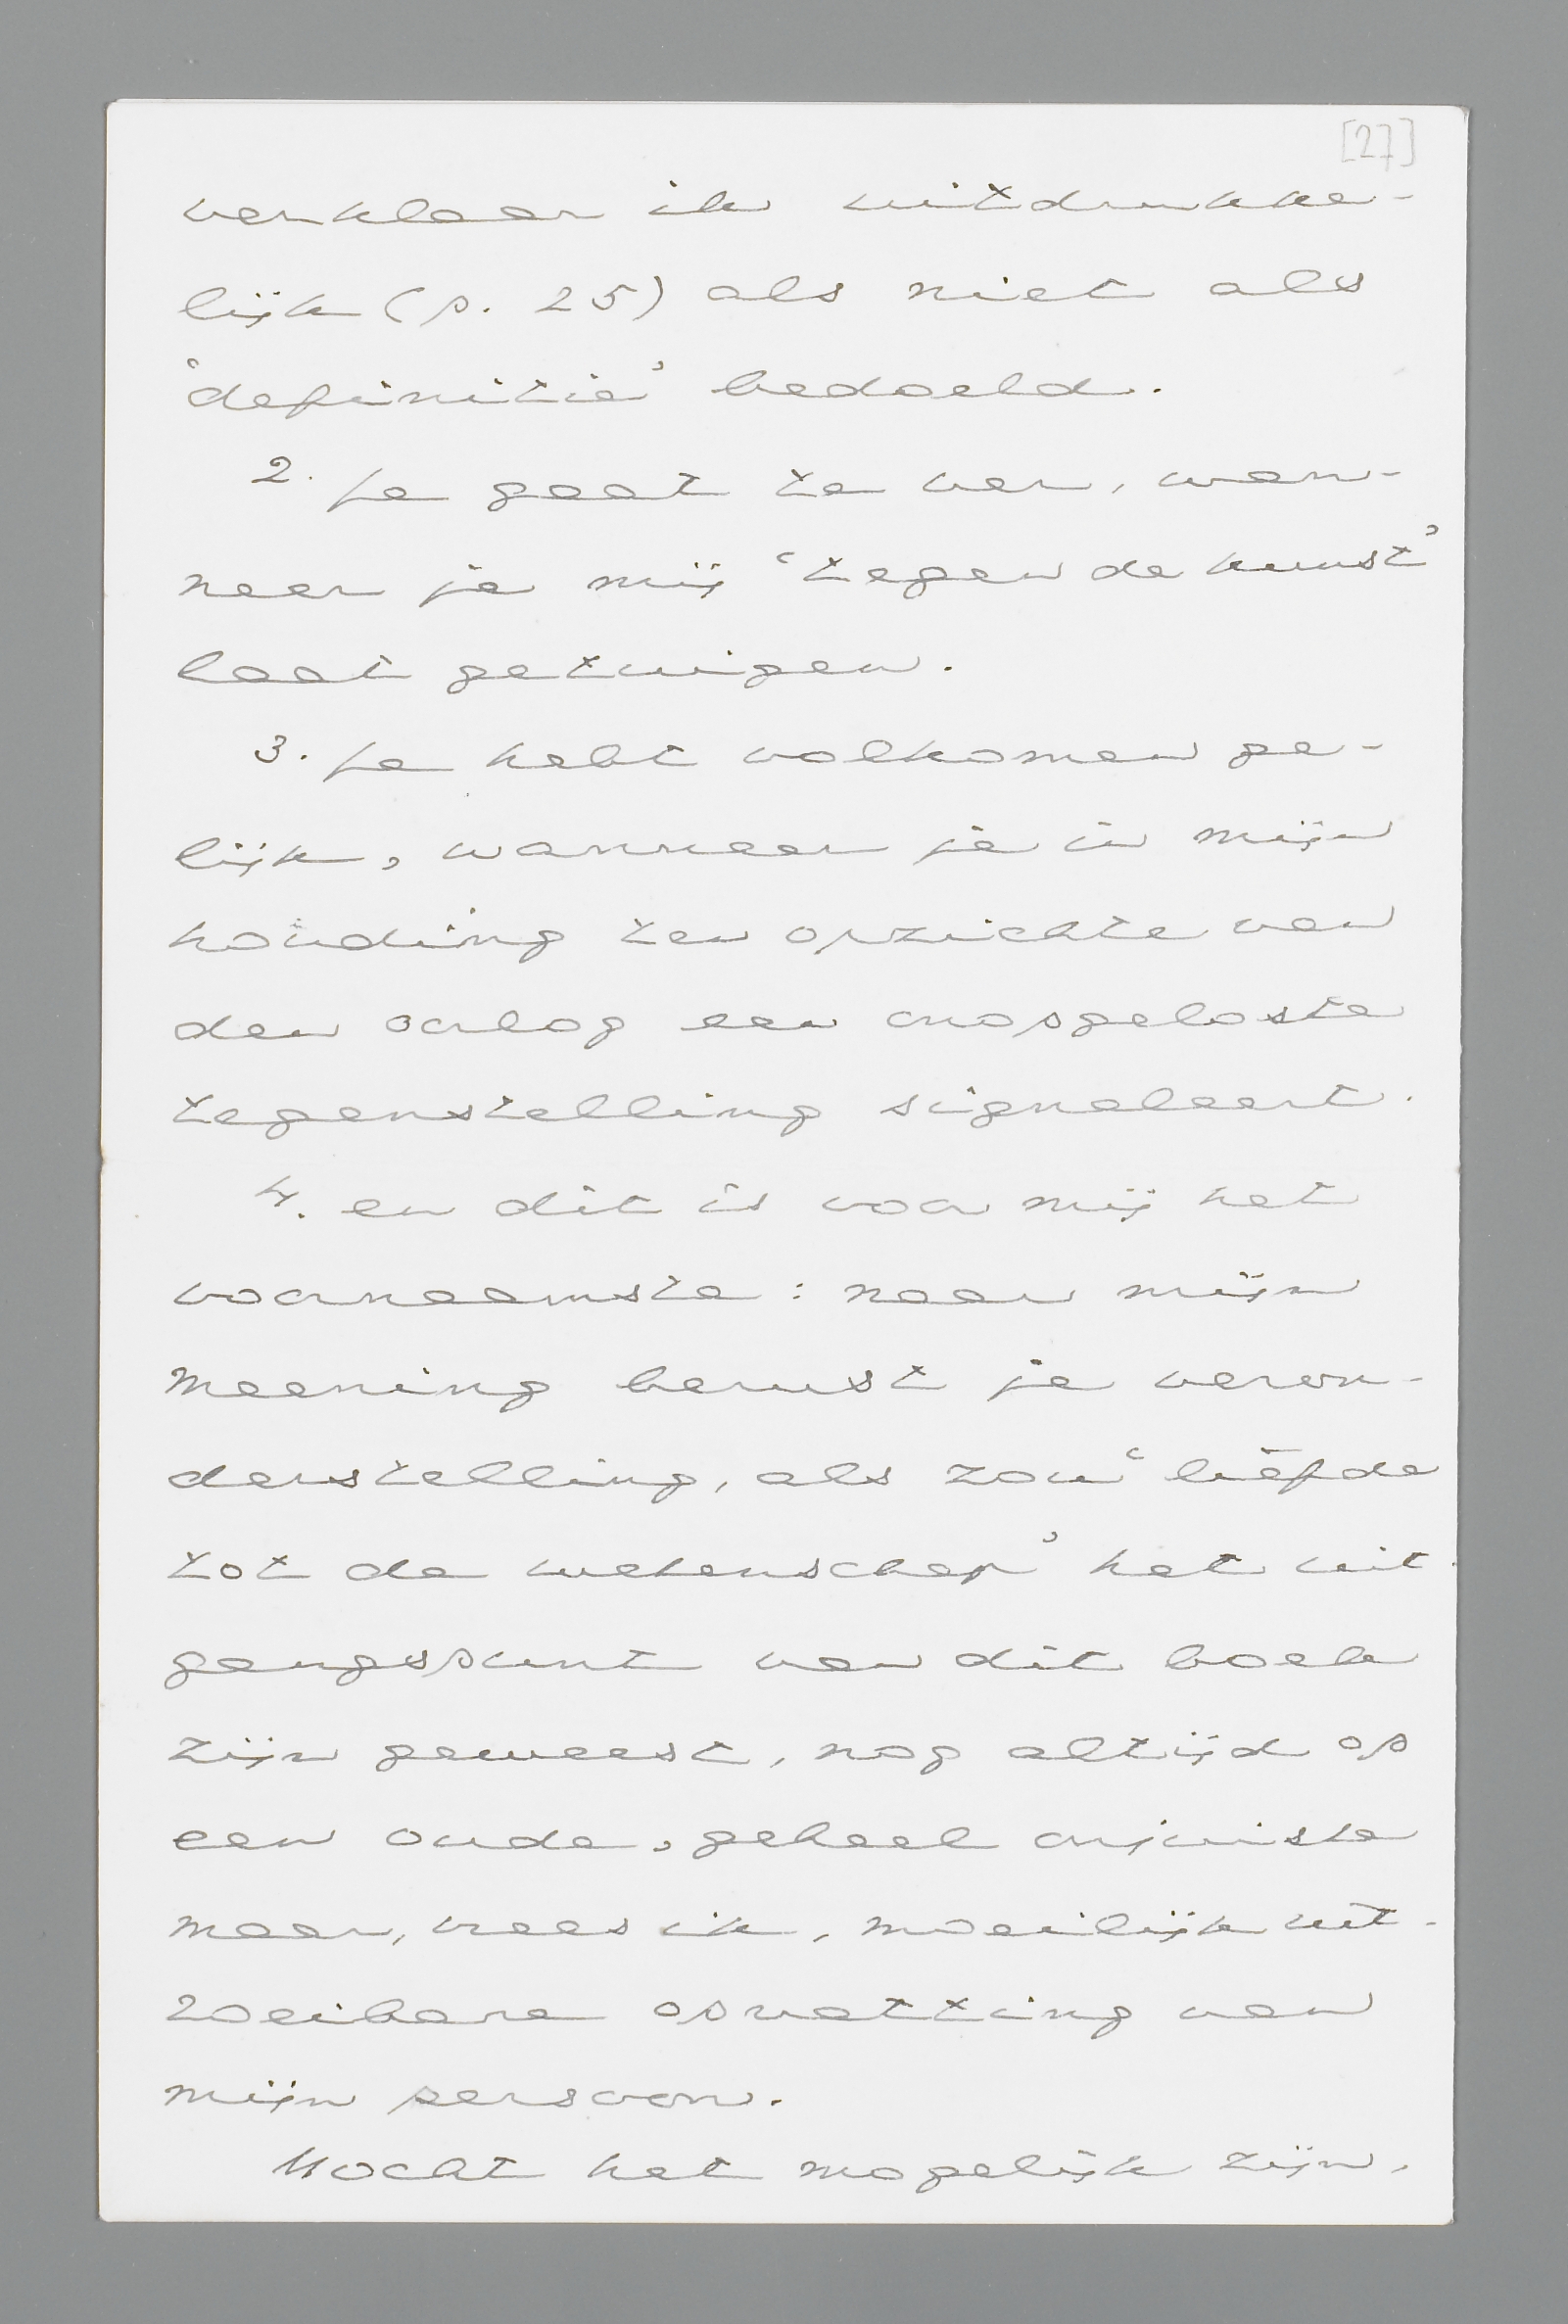 [27]
verklaar ik uitdrukke-
lijk (p. 25) als niet als
‘definitie’ bedoeld.
2. Je gaat te ver, wan-
neer je mij ‘tegen de kunst’
laat getuigen.
3. Je hebt volkomen ge-
lijk, wanneer je in mijn
houding ten opzichte van
den oorlog een onopgeloste
tegenstelling signaleert.
4. en dit is voor mij het
voornaamste: naar mijn
meening berust je veron-
derstelling, als zou ‘liefde
tot de wetenschap’ het uit-
gangspunt van dit boek
zijn geweest, nog altijd op
een oude, geheel onjuiste
maar, vrees ik, moeilijk uit-
roeibare opvatting van
mijn persoon.
Mocht het mogelijk zijn,